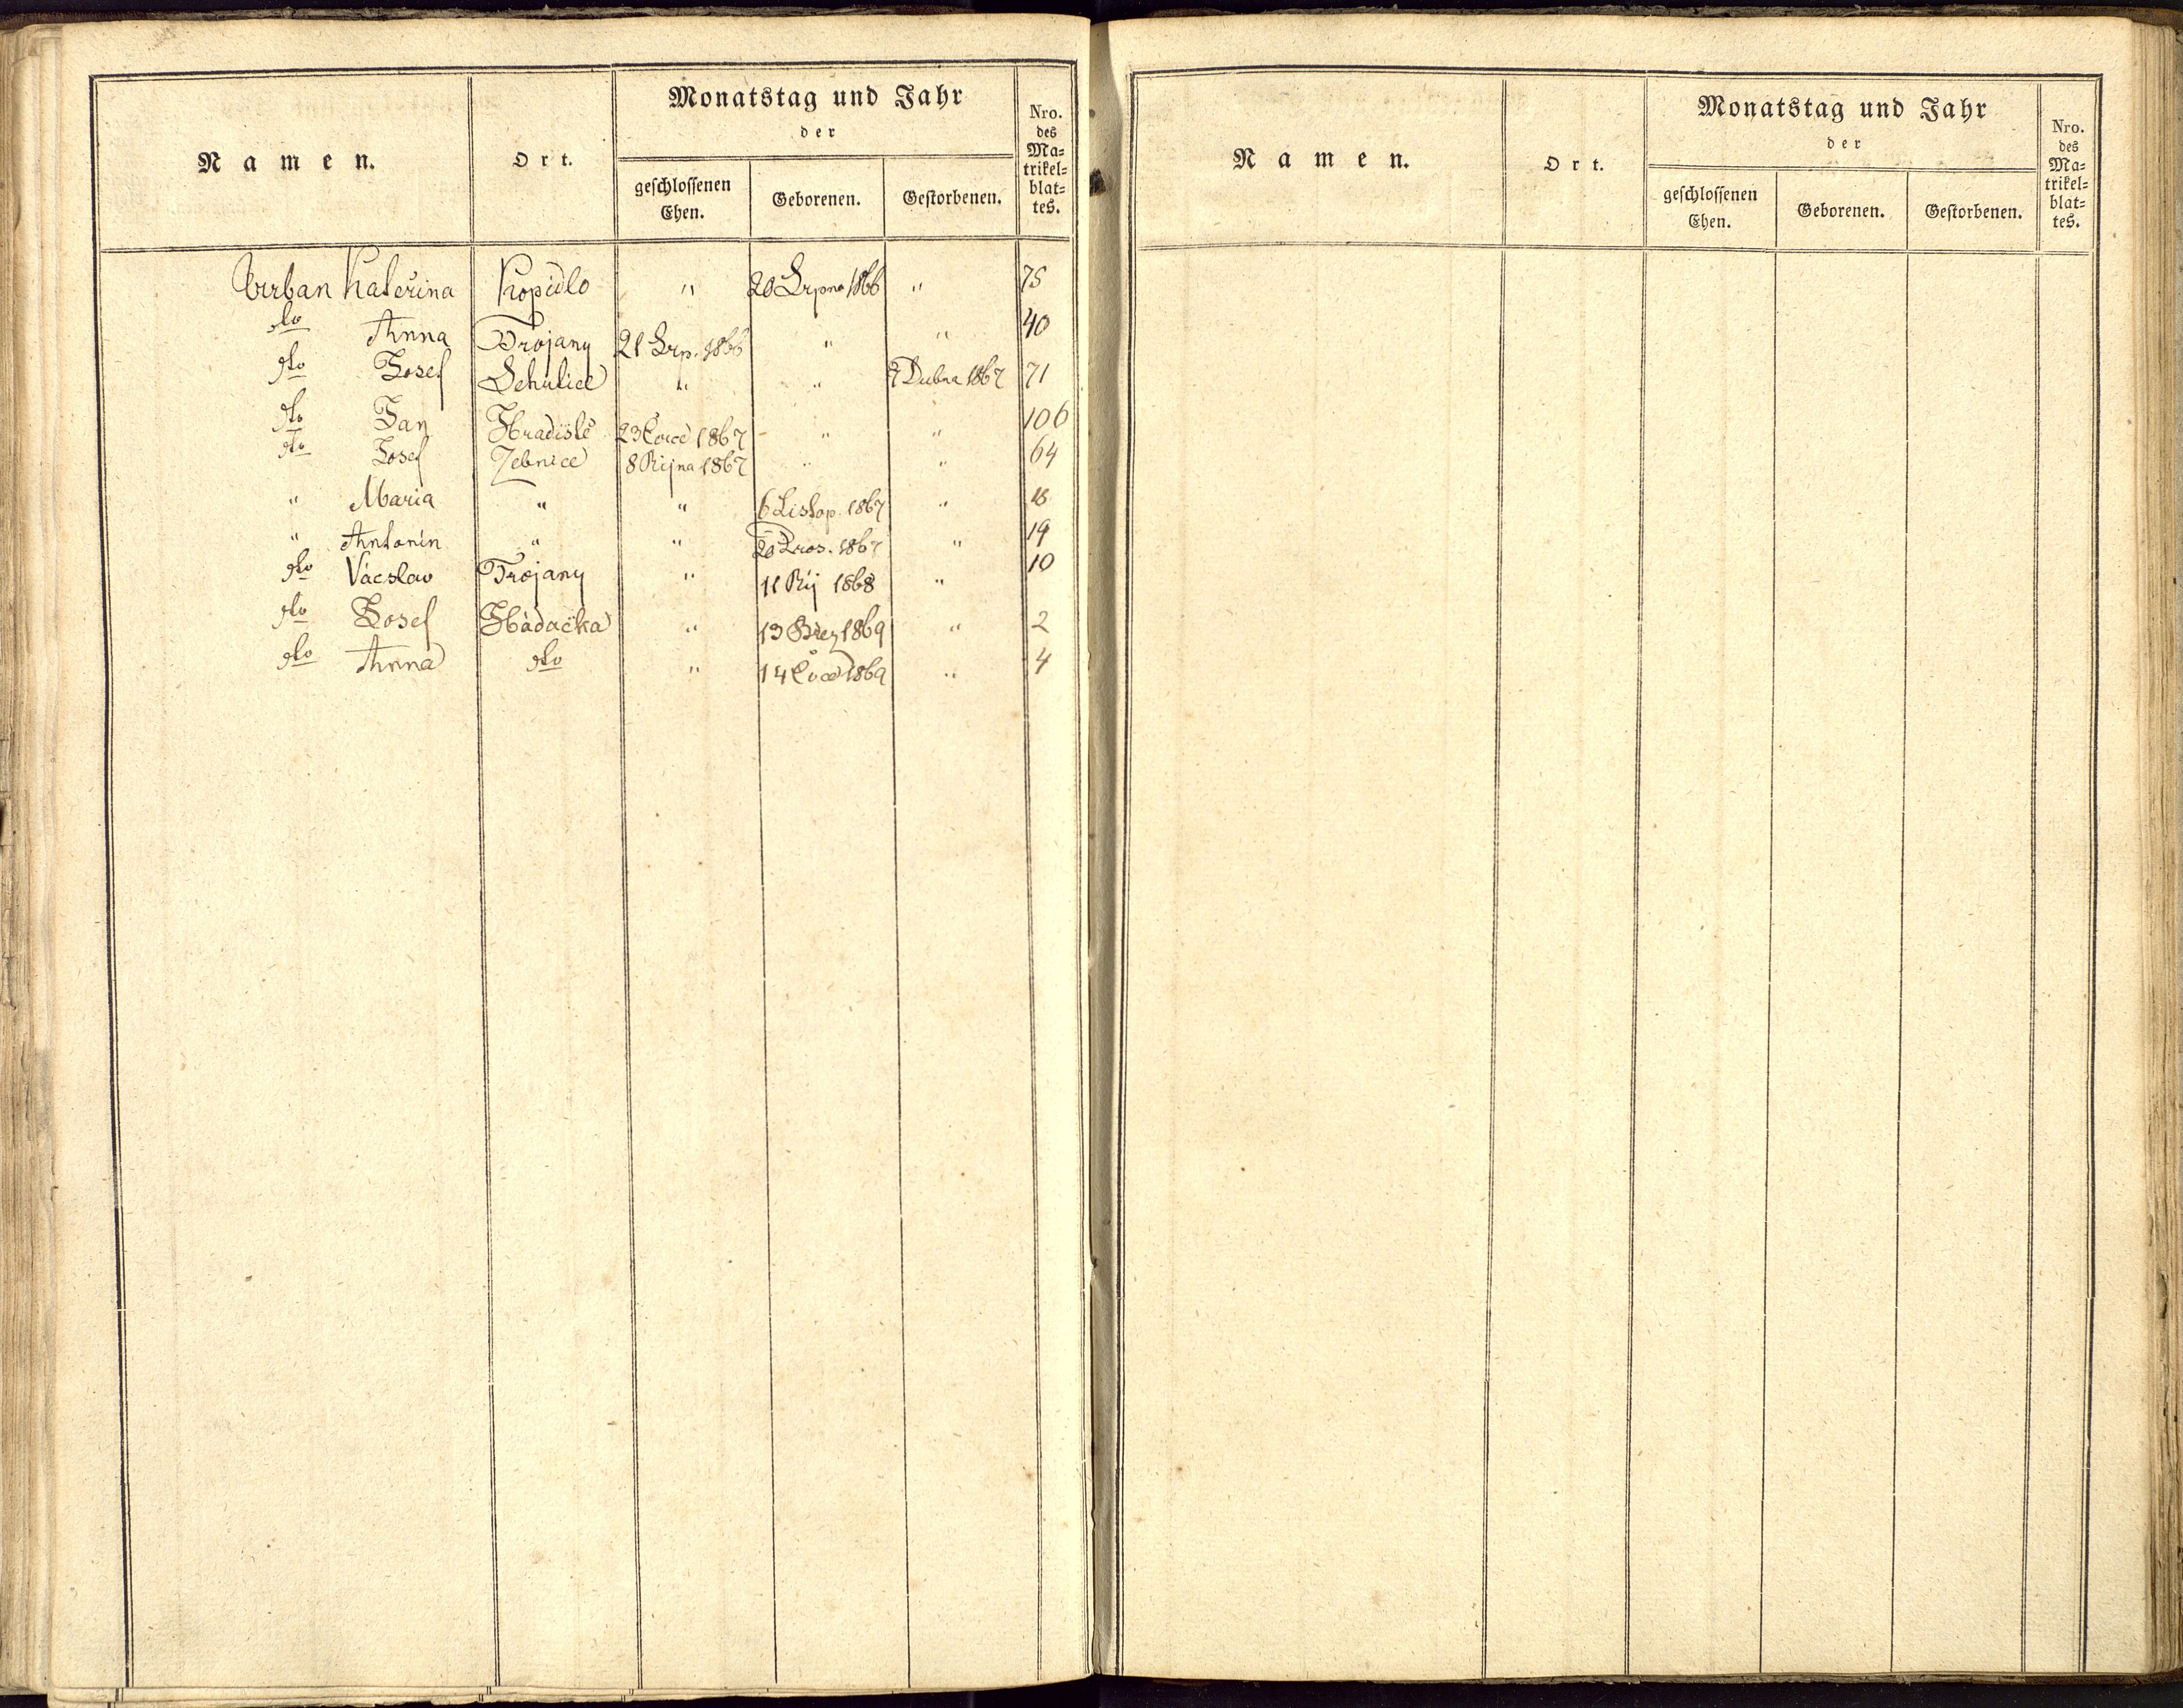 Namen.
Ort.
Monatstag und Jahr
der
geschlossenen
Ehen.
Geborenen.
Gestorbenen.
Nro.
des
Ma-
trikel-
blat-
tes.
Urban Kateřina Kopidlo " 20 Srpna 1866 " 75
dto Anna Trojany 21 Srp. 1866 " " 40
dto Josef Sehulice " " 7 Dubna 1867 71
dto Jan Hradiště 23 Čerce 1867 " " 106
dto Josef Žebnice 8 Října 1867 " " 64
" Maria " " 6 Listop. 1867 " 18
" Antonín " " 20 Pros. 1867 " 19
dto Václav Trojany " 11 Říj 1868 " 10
dto Josef Hádačka " 13 Břez 1869 " 2
dto Anna dto " 14 1869 " 4
Namen.
Ort.
Monatstag und Jahr
der
geschlossenen
Ehen.
Geborenen.
Gestorbenen.
Nro.
des
Ma-
trikel-
blat-
tes.